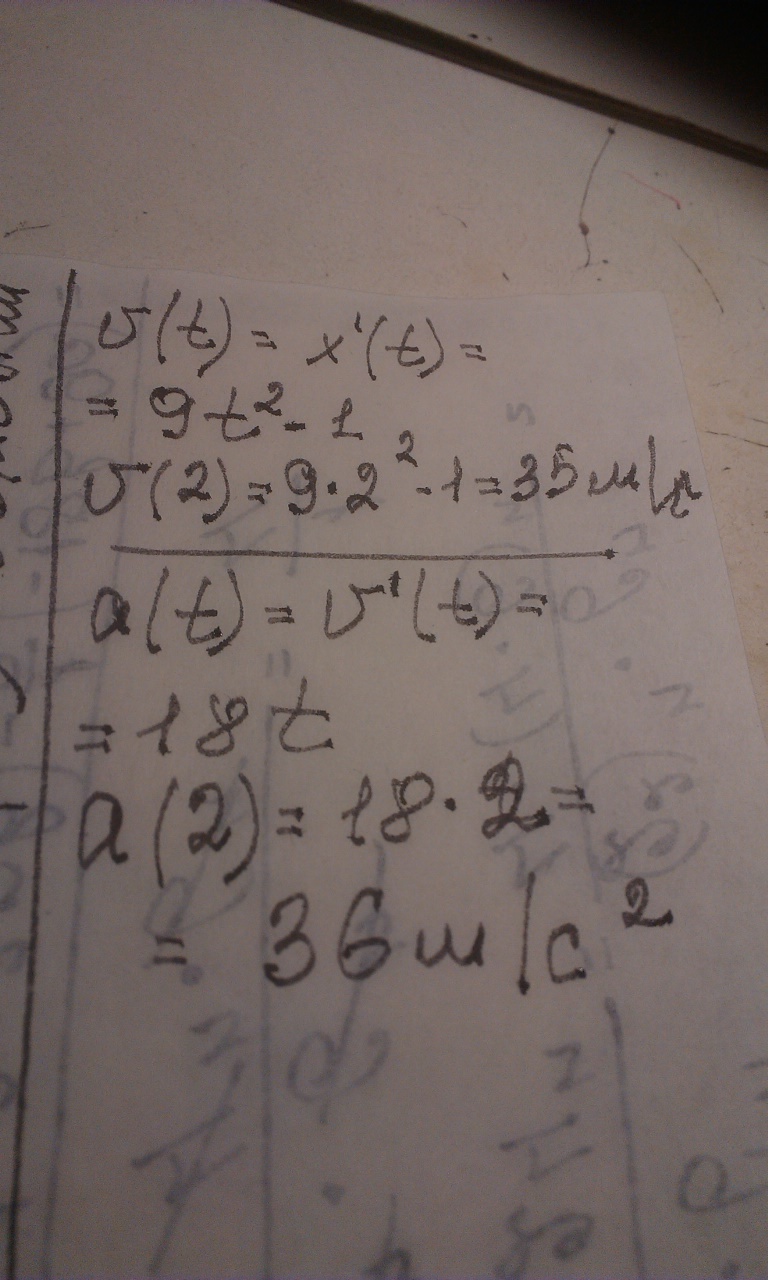 v(t) = x'(t) =
= 9t² - 1
v(2) = 9·2² - 1 = 35 м/с
a(t) = v'(t) =
= 18t
a(2) = 18·2 =
= 36 м/с²